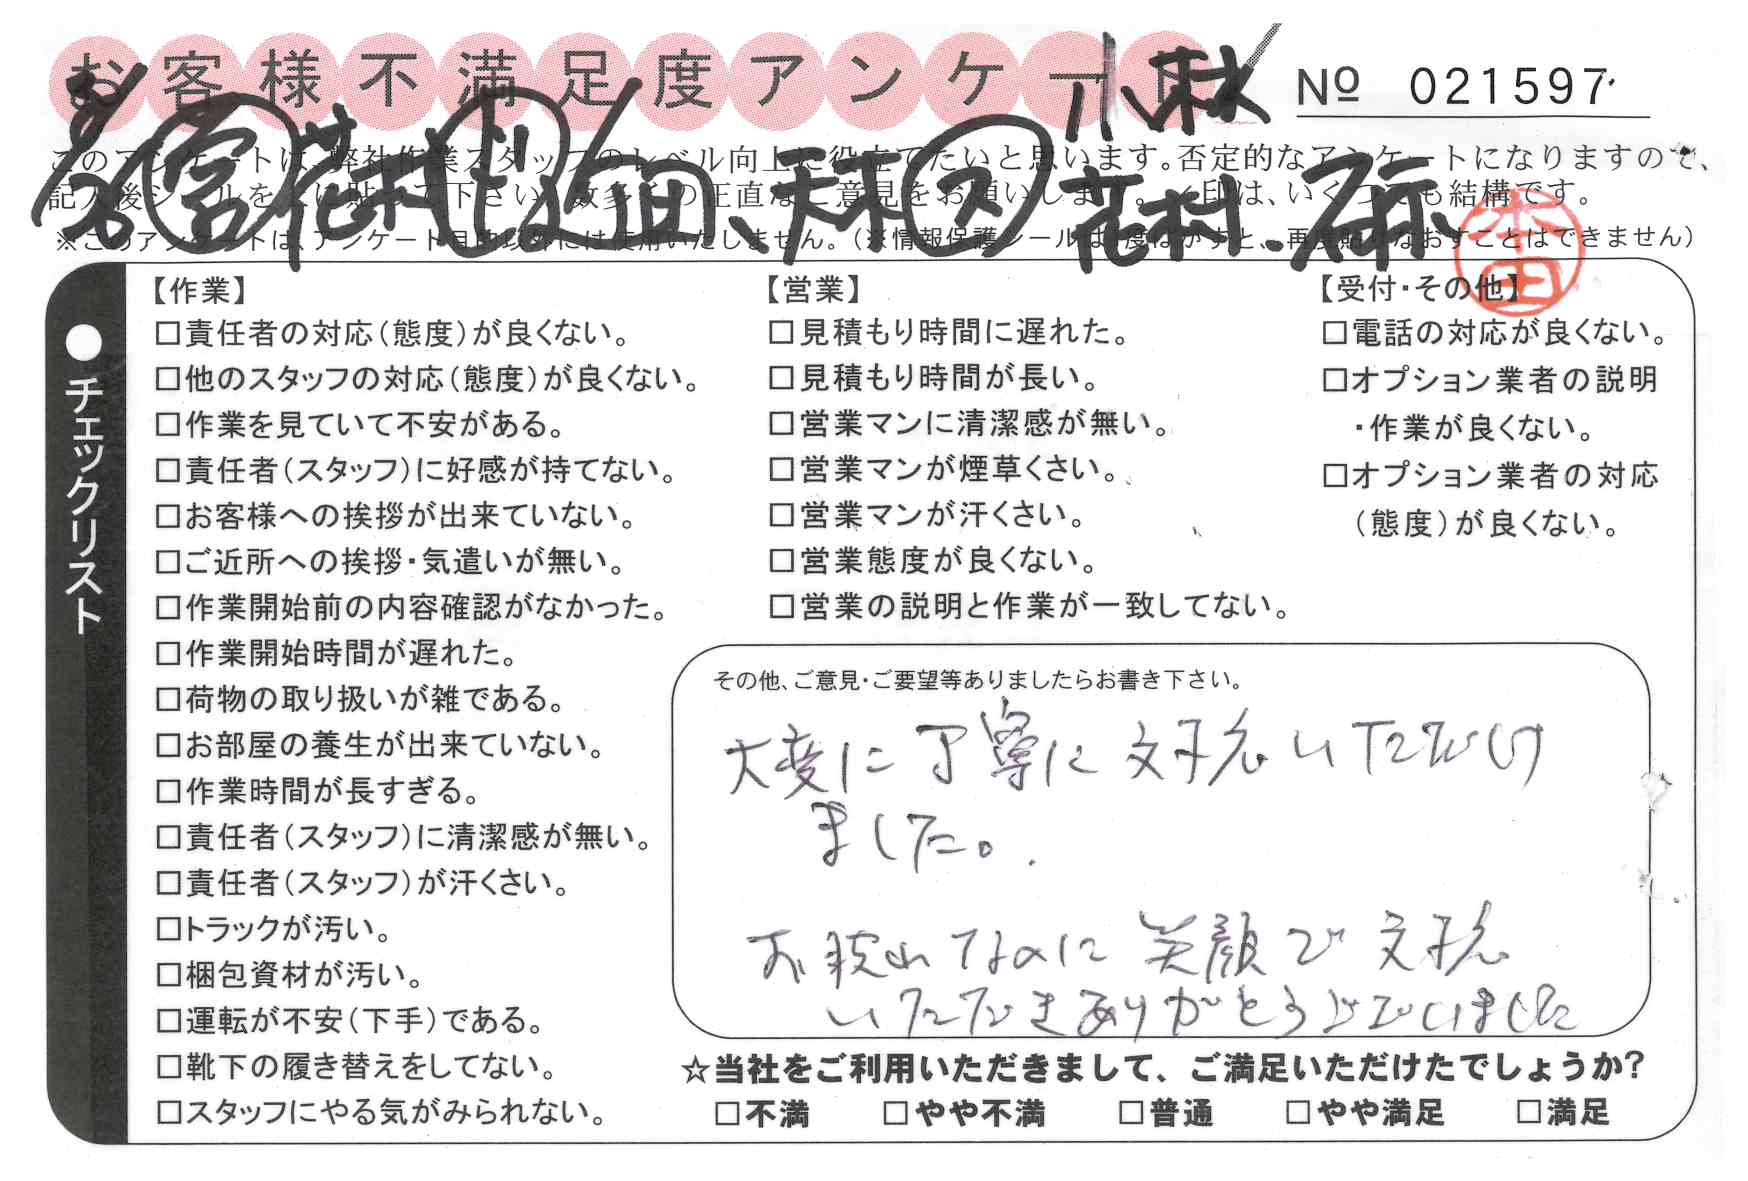 お客様不満足度アンケート
小林
Nº 021597
このアンケートは、弊社作業スタッフのレベル向上に役立てたいと思います。否定的なアンケートになりますので、
記入後シールを上に貼って下さい。数多くの正直なご意見をお願いします。✓印は、いくつでも結構です。
※このアンケートは、アンケート目的以外には使用いたしません。（※情報保護シールは1度はがすと、再度貼りなおすことはできません）
本田
●チェックリスト
【作業】
□責任者の対応（態度）が良くない。
□他のスタッフの対応（態度）が良くない。
□作業を見ていて不安がある。
□責任者（スタッフ）に好感が持てない。
□お客様への挨拶が出来ていない。
□ご近所への挨拶・気遣いが無い。
□作業開始前の内容確認がなかった。
□作業開始時間が遅れた。
□荷物の取り扱いが雑である。
□お部屋の養生が出来ていない。
□作業時間が長すぎる。
□責任者（スタッフ）に清潔感が無い。
□責任者（スタッフ）が汗くさい。
□トラックが汚い。
□梱包資材が汚い。
□運転が不安（下手）である。
□靴下の履き替えをしてない。
□スタッフにやる気がみられない。
【営業】
□見積もり時間に遅れた。
□見積もり時間が長い。
□営業マンに清潔感が無い。
□営業マンが煙草くさい。
□営業マンが汗くさい。
□営業態度が良くない。
□営業の説明と作業が一致してない。
【受付・その他】
□電話の対応が良くない。
□オプション業者の説明
・作業が良くない。
□オプション業者の対応
（態度）が良くない。
その他、ご意見・ご要望等ありましたらお書き下さい。
大変に丁寧に対応いただけ
ました。
お疲れなのに笑顔で対応
いただきありがとうございました
☆当社をご利用いただきまして、ご満足いただけたでしょうか?
□不満 □やや不満 □普通 □やや満足 □満足